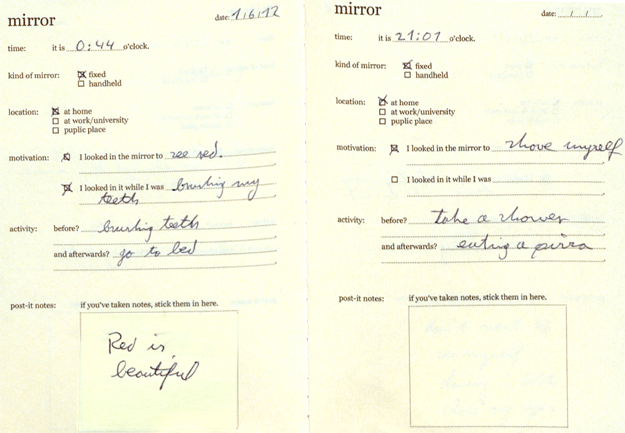 mirror
date: 1/6/12
time: it is 0:44 o'clock.
kind of mirror: fixed
handheld
location: at home
at work/university
puplic place
motivation: I looked in the mirror to see red.
I looked in it while I was brushing my
teeth
activity: before? brushing teeth
and afterwards? go to bed
post-it notes: if you've taken notes, stick them in here.
Red is
beautiful
mirror
date: / /
time: it is 21:01 o'clock.
kind of mirror: fixed
handheld
location: at home
at work/university
puplic place
motivation: I looked in the mirror to shave myself
I looked in it while I was
activity: before? take a shower
and afterwards? eating a pizza
post-it notes: if you've taken notes, stick them in here.